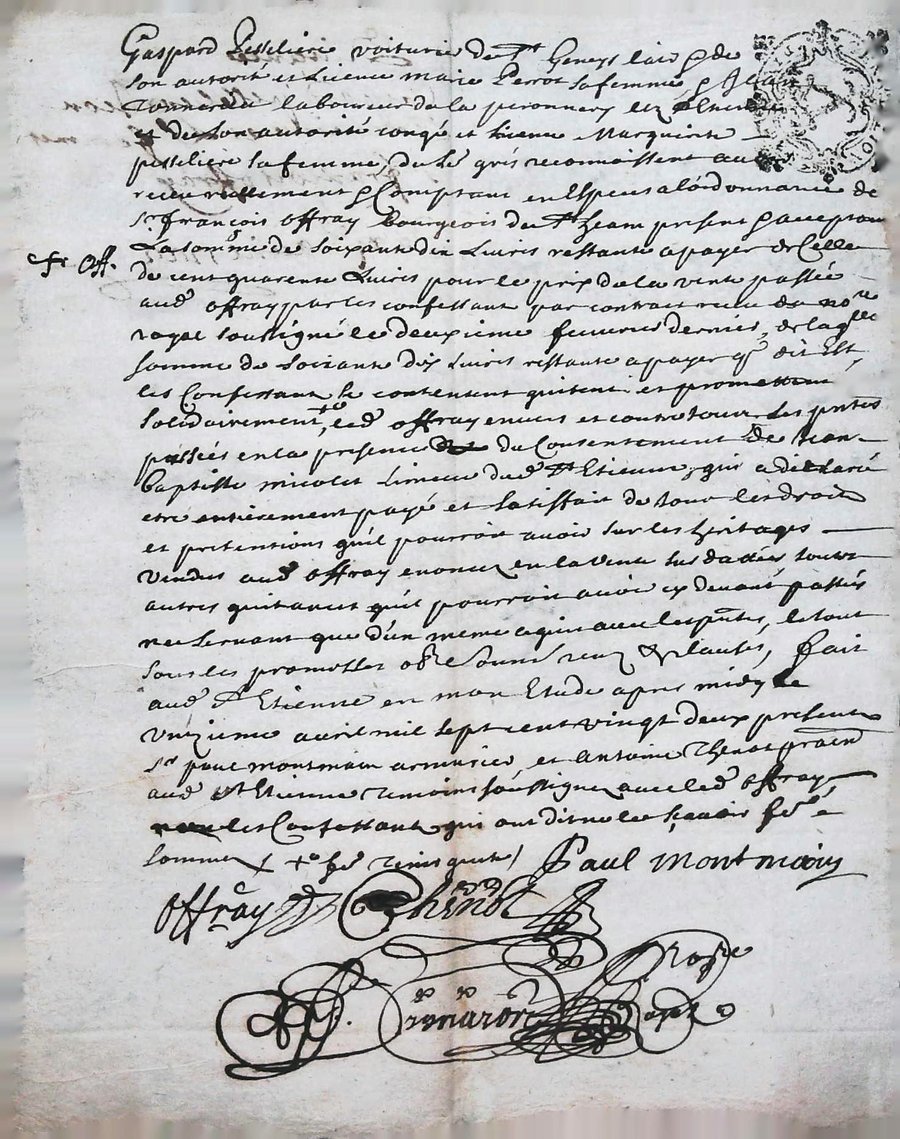 Gaspard Pesseliere voiturie de St Geneys lair & de
son autorité et Licence marie Perrot sa femme & Jean
laboureur de la peronnery lez
et de son autorité congé et licence Marguerite
pesseliere sa femme, de gré reconnoissent avoir
receu réellement & Comptant en Especes a lordonnance de
Sr françois offray Bourgeois de St Jeam present & acceptan
La somme de soixante dix Livres restante a payer de Celle
fr Off.
de cent quarente Livres pour le prix de la vente passée
aud offray par les confessant par contract receu du nore
royal soussigné le deuxieme feuvrier dernier, de laqlle
somme de soixante dix Livres restante a payer qe dit Est,
les Confessant se contentent quitent et promettent
solidairement, led offray envers et contre tous Les pntes
passées en la presence du Consentement de Jean
baptiste micolet Limeur dud St Etienne, qui a déclaré
etre entièrement payé et satisffait de tous les droits
et pretentions quil pourroit avoir sur les heritages
vendus aud offray enoncez en la vente sus dattée, toutes
autres quitances quil pourroit avoir cy devant passées
ne servant que d'un meme aquis avec les pntes, le tout
sous les promesses obl soum renz & clauses, fait
aud St Etienne en mon Etude apres midy le
unzieme avril mil sept cent vingt deux presents
Sr paul montmain armurier, et antoine Thenot praen
aud St Etienne temoins soussignez avec led offray
les Confessant qui ont dit ne le sçavoir fe e
sommez X + fe requis / Paul montmain
offray Thenot